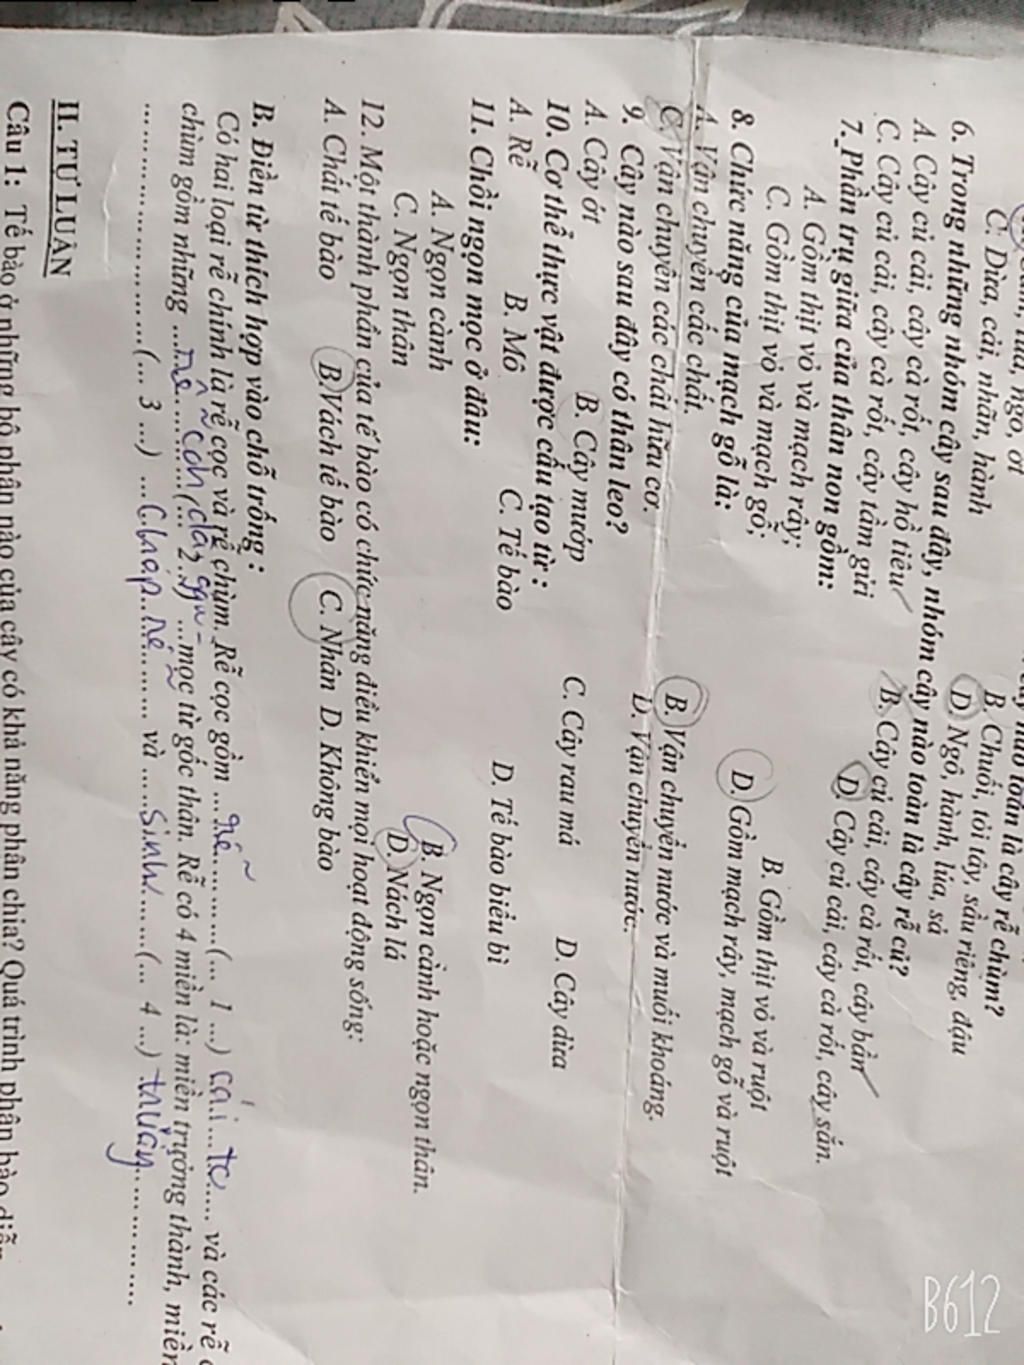 cây nào toàn là cây rễ chùm?
lúa, ngô, ớt
B. Chuối, tỏi tây, sầu riêng, đậu
C. Dừa, cải, nhãn, hành
D. Ngô, hành, lúa, sả
6. Trong những nhóm cây sau đây, nhóm cây nào toàn là cây rễ củ?
A. Cây củ cải, cây cà rốt, cây hồ tiêu
B. Cây củ cải, cây cà rốt, cây bần
C. Cây củ cải, cây cà rốt, cây tầm gửi
D. Cây củ cải, cây cà rốt, cây sắn.
7. Phần trụ giữa của thân non gồm:
A. Gồm thịt vỏ và mạch rây;
B. Gồm thịt vỏ và ruột
C. Gồm thịt vỏ và mạch gỗ;
D. Gồm mạch rây, mạch gỗ và ruột
8. Chức năng của mạch gỗ là:
A. Vận chuyển các chất.
B. Vận chuyển nước và muối khoáng.
C. Vận chuyển các chất hữu cơ.
D. Vận chuyển nước.
9. Cây nào sau đây có thân leo?
A. Cây ớt B. Cây mướp C. Cây rau má D. Cây dừa
10. Cơ thể thực vật được cấu tạo từ :
A. Rễ B. Mô C. Tế bào D. Tế bào biểu bì
11. Chồi ngọn mọc ở đâu:
A. Ngọn cành B. Ngọn cành hoặc ngọn thân.
C. Ngọn thân D. Nách lá
12. Một thành phần của tế bào có chức năng điều khiển mọi hoạt động sống:
A. Chất tế bào B. Vách tế bào C. Nhân D. Không bào
B. Điền từ thích hợp vào chỗ trống :
Có hai loại rễ chính là rễ cọc và rễ chùm. Rễ cọc gồm ...rễ............(... 1 ...) cái...to.... và các rễ
chùm gồm những ............ (... 2 ...) ...mọc từ gốc thân. Rễ có 4 miền là: miền trưởng thành, miền
........................(... 3 ...) ............... và .....Sinh........(... 4 ...) ............
II. TỰ LUẬN
Câu 1: Tế bào ở những bộ phận nào của cây có khả năng phân chia? Quá trình phân bào diễn
B612